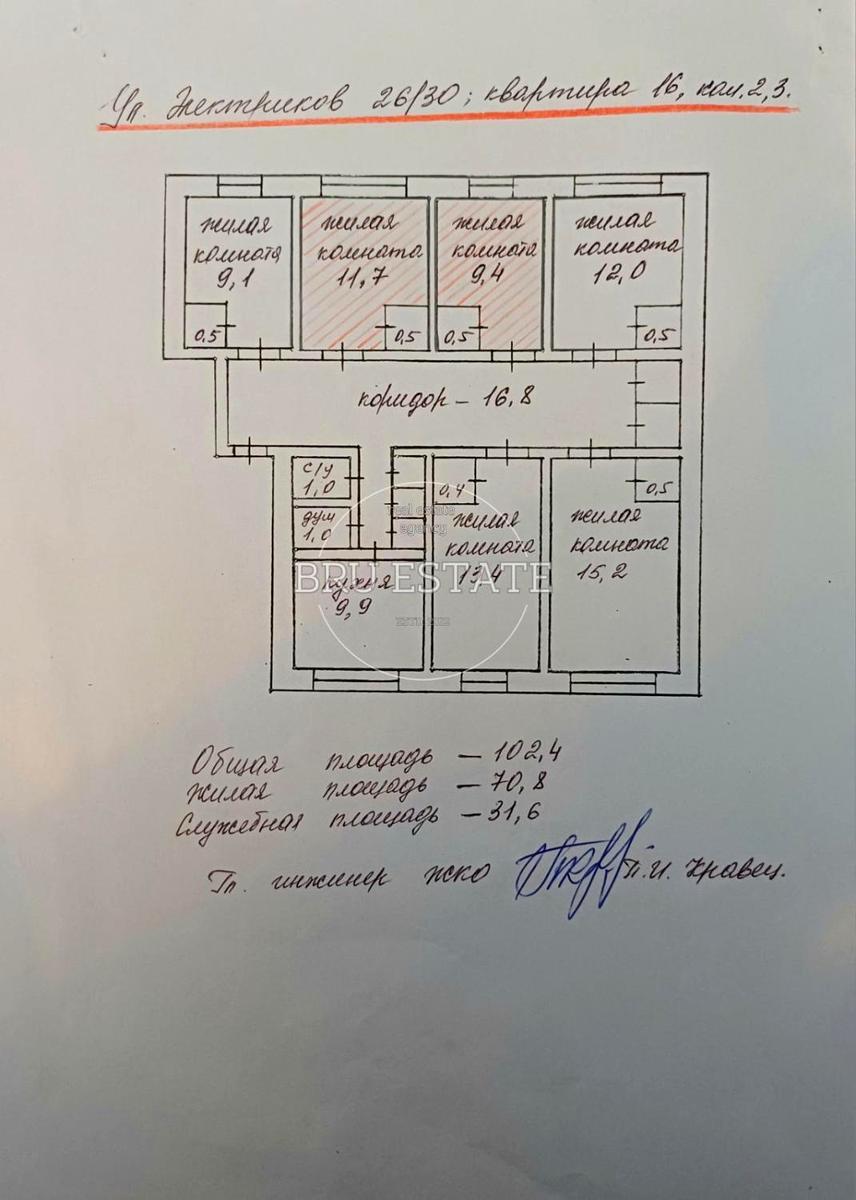 Ул. Электриков 26/30; квартира 16, ком. 2,3.
жилая
комната
9,1
0,5
жилая
комната
11,7
0,5
жилая
комната
9,4
0,5
жилая
комната
12,0
0,5
коридор – 16,8
с/у
1,0
душ
1,0
кухня
9,9
0,4
жилая
комната
13,4
0,5
жилая
комната
15,2
real estate
agency
BRU ESTATE
Общая площадь – 102,4
Жилая площадь – 70,8
Служебная площадь – 31,6
Гл. инженер ЖКО П.И. Кравец.